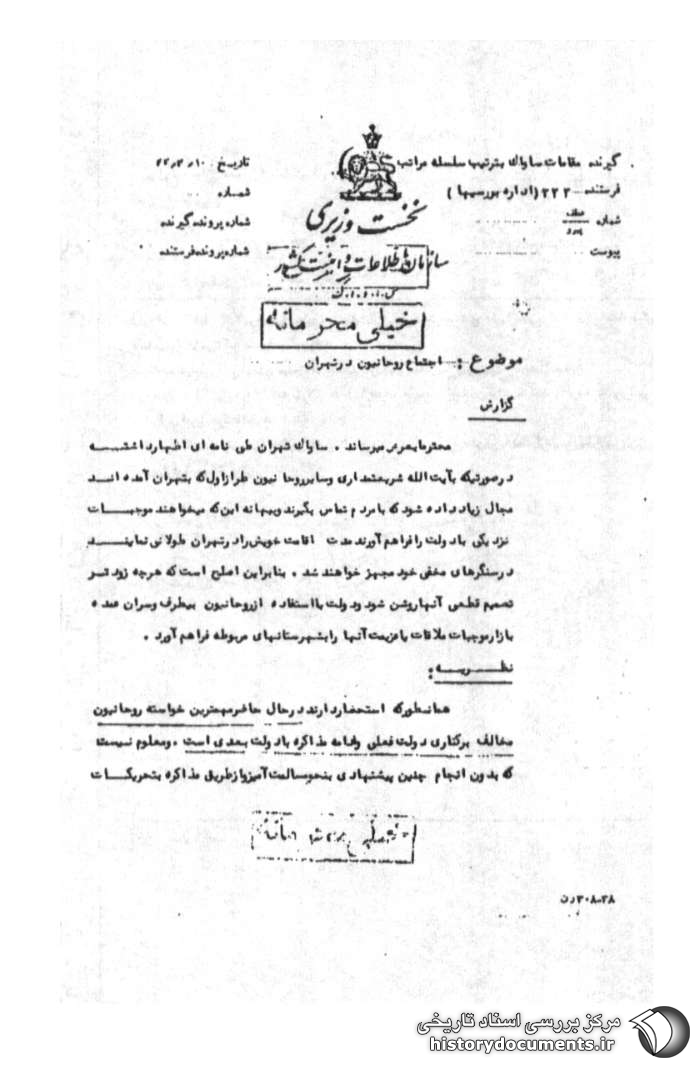 گیرنده مقامات ساواك بترتیب سلسله مراتب
فرستنده ۲۲۲ (اداره بررسیها)
شماره
پیوست
نخست وزیری
سازمان اطلاعات و امنیت کشور
س.ا.و.ا.ك
تاریخ
شماره
شماره پرونده گیرنده
شماره پرونده فرستنده
خیلی محرمانه
موضوع : اجتماع روحانیون در تهران
گزارش
محترما بعرض میرساند . ساواك تهران طی نامه ای اظهار داشته
در صورتیکه بآیت الله شریعتمداری وسایر روحانیون طراز اول که بتهران آمده اند
مجال زیاد داده شود که با مردم تماس بگیرند و ببهانه این که میخواهند موجبات
نزدیکی با دولت را فراهم آورند مدت اقامت خویش را در تهران طولانی نمایند
در سنگرهای مخفی خود مجهز خواهند شد . بنابراین اصلح است که هرچه زودتر
تصمیم قطعی آنها روشن شود و دولت با استفاده از روحانیون بیطرف و سران عمده
بازار موجبات ملاقات یا عزیمت آنها را بشهرستانهای مربوطه فراهم آورد .
نظریه :
همانطور که استحضار دارند در حال حاضر مهمترین خواسته روحانیون
مخالف برکناری دولت فعلی و ادامه مذاکره با دولت بعدی است . و معلوم نیست
که بدون انجام چنین پیشنهادی بنحو مسالمت آمیز و از طریق مذاکره بتحریکات
خیلی محرمانه
مرکز بررسی اسناد تاریخی
historydocuments.ir